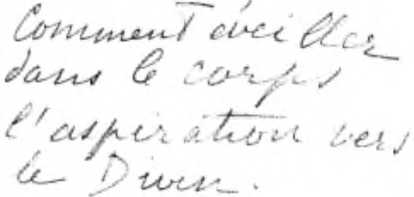 Comment éveiller
dans le corps
l'aspiration vers
le Divin.